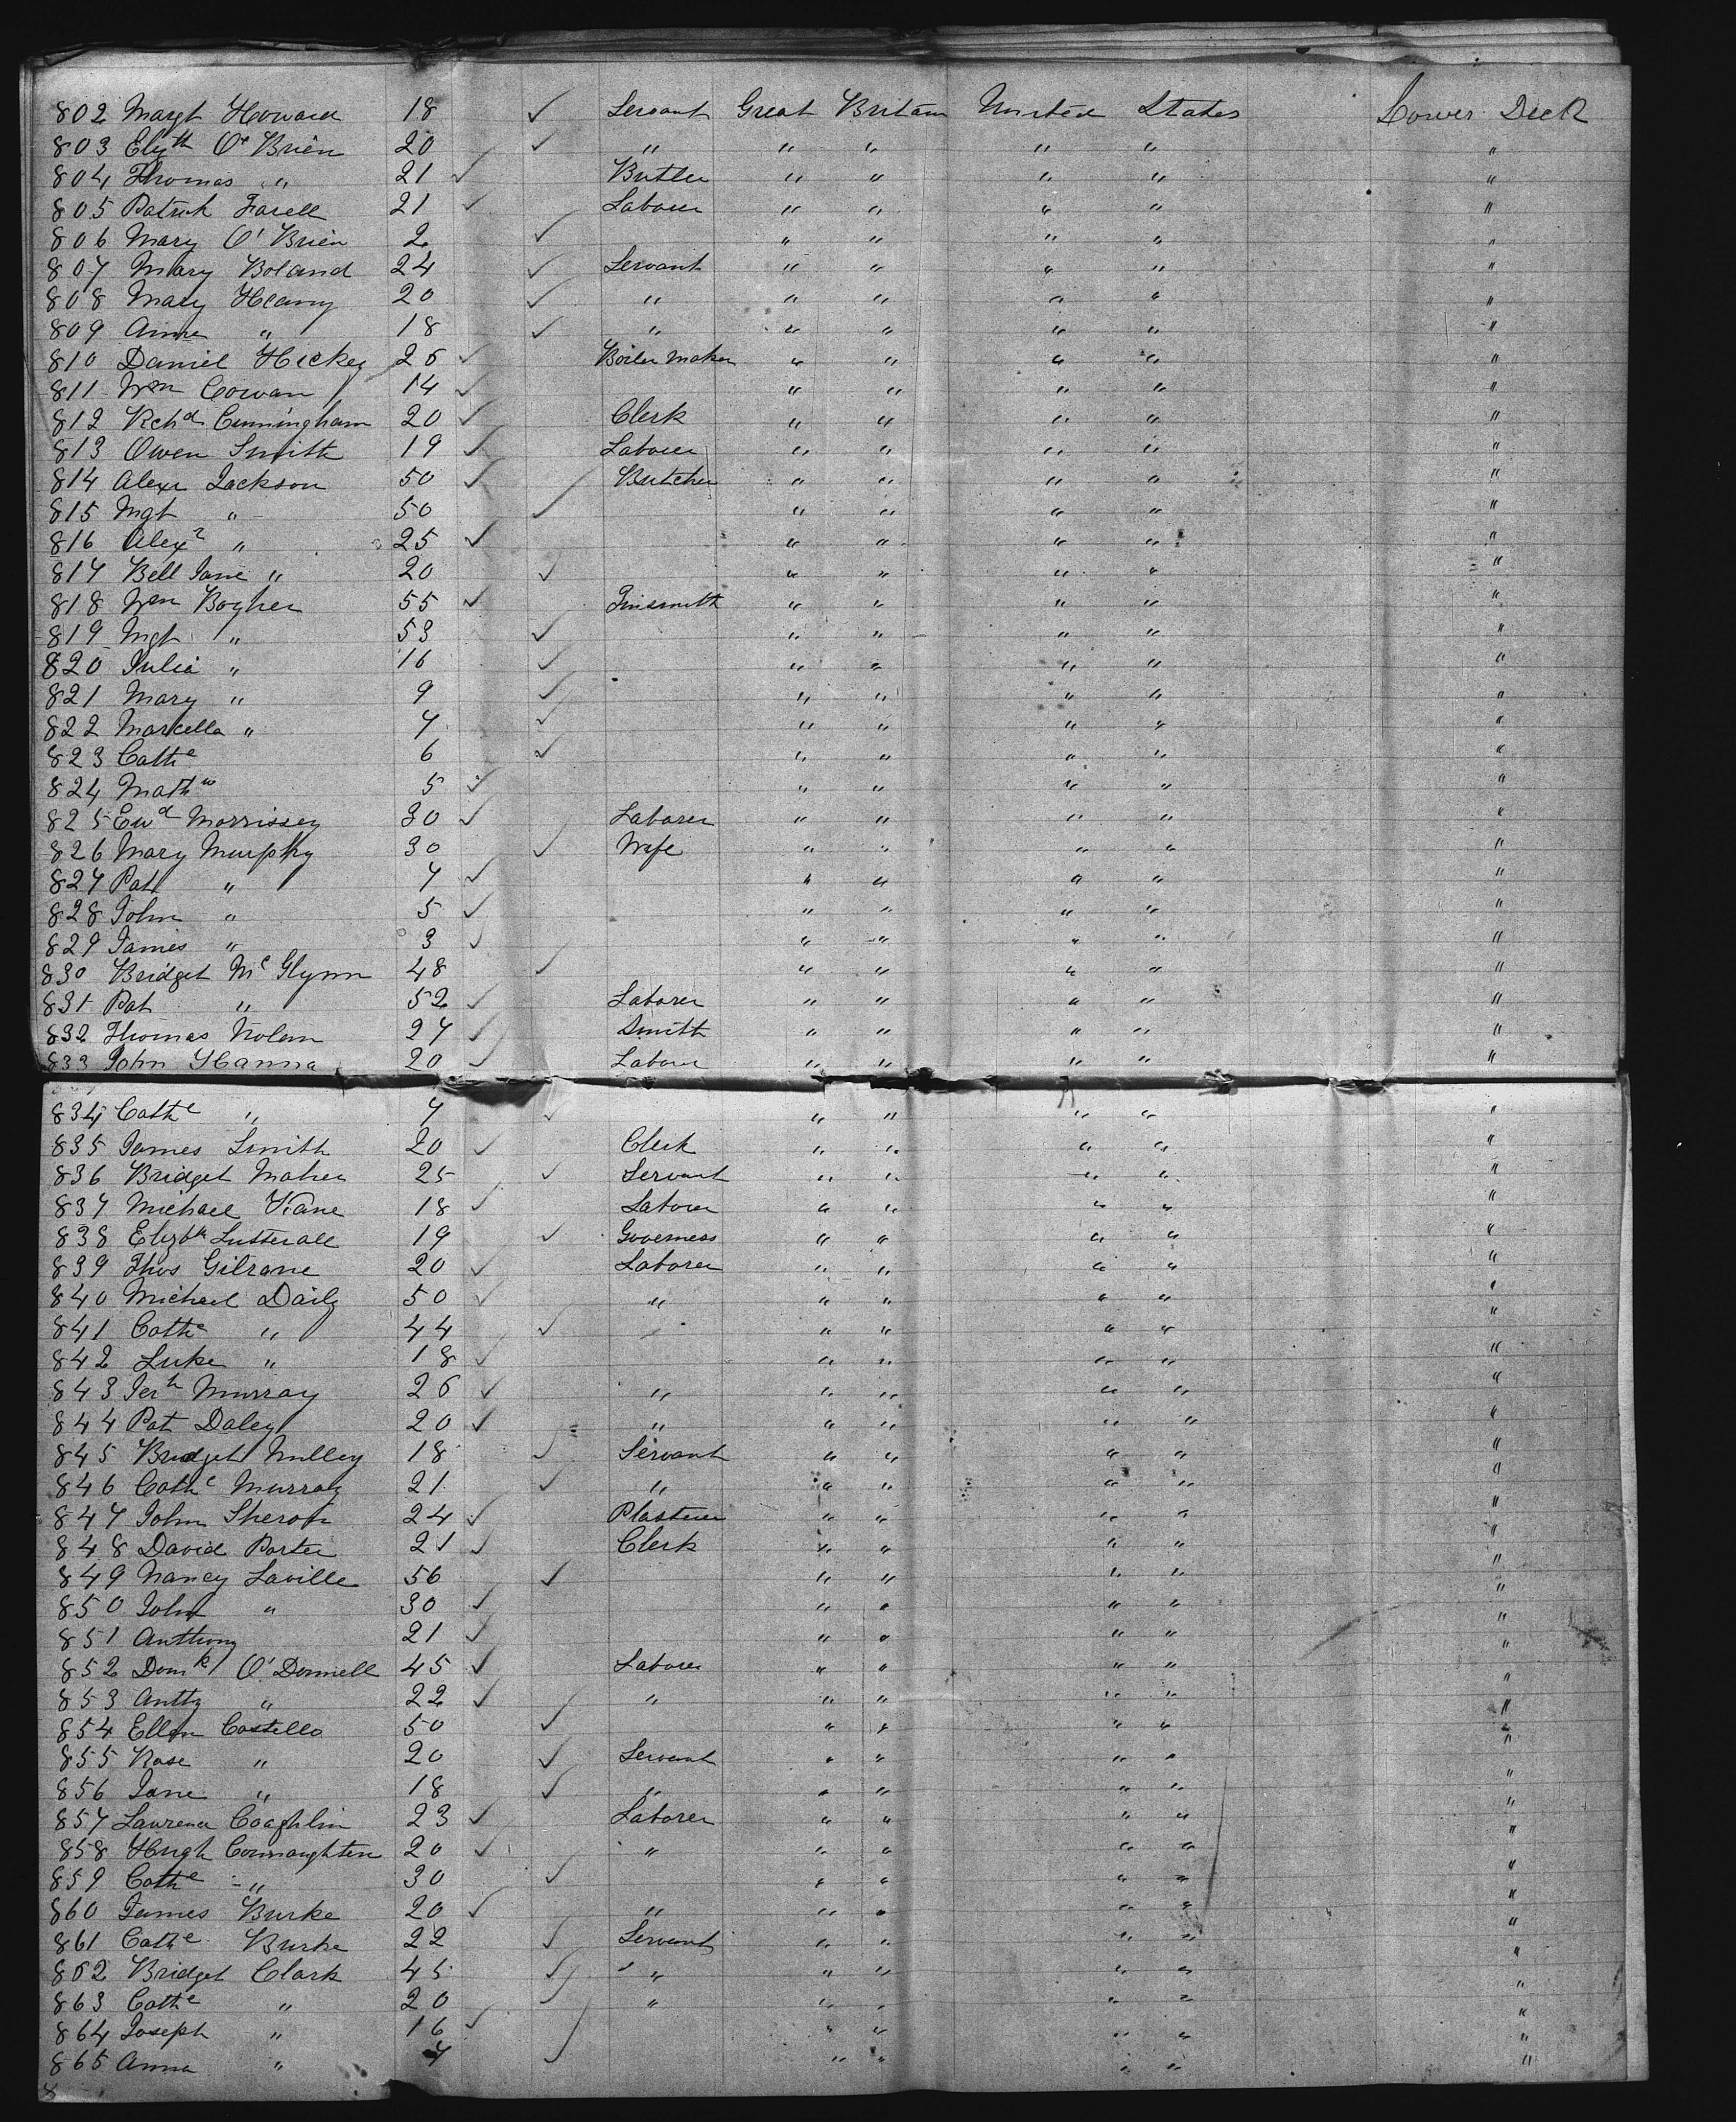 802 Margt Howard 18 ✓ Servant Great Britain United States Lower Deck
803 Elizth O'Brien 20 ✓ " " " " " "
804 Thomas " 21 ✓ Butler " " " " "
805 Patrick Farell 21 ✓ Laborer " " " " "
806 Mary O'Brien 2 ✓ " " " " "
807 Mary Boland 24 ✓ Servant " " " " "
808 Mary Heany 20 ✓ " " " " " "
809 Anne " 18 ✓ " " " " " "
810 Daniel Hickey 25 ✓ Boiler Maker " " " " "
811 Wm Cowan 14 ✓ " " " " "
812 Richd Cunningham 20 ✓ Clerk " " " " "
813 Owen Smith 19 ✓ Laborer " " " " "
814 Alexr Jackson 50 ✓ Butcher " " " " "
815 Mgt " 50 ✓ " " " " "
816 Alexr " 25 ✓ " " " " "
817 Bell Jane " 20 ✓ " " " " "
818 Wm Bogher 55 ✓ Tinsmith " " " " "
819 Mgt " 53 ✓ " " " " "
820 Julia " 16 ✓ " " " " "
821 Mary " 9 ✓ " " " " "
822 Marcella " 7 ✓ " " " " "
823 Cathe 6 ✓ " " " " "
824 Mathw 5 ✓ " " " " "
825 Ewd Morrissey 30 ✓ Laborer " " " " "
826 Mary Murphy 30 ✓ Wife " " " " "
827 Pat " 7 ✓ " " " " "
828 John " 5 ✓ " " " " "
829 James " 3 ✓ " " " " "
830 Bridget McGlynn 48 ✓ " " " " "
831 Pat " 52 ✓ Laborer " " " " "
832 Thomas Nolan 27 ✓ Smith " " " " "
833 John Hanna 20 ✓ Laborer " " " " "
834 Cathe " 7 ✓ " " " " "
835 James Smith 20 ✓ Clerk " " " " "
836 Bridget Maher 25 ✓ Servant " " " " "
837 Michael Kane 18 ✓ Laborer " " " " "
838 Elizbth Lutterall 19 ✓ Governess " " " " "
839 Thos Gilrane 20 ✓ Laborer " " " " "
840 Michael Daily 50 ✓ " " " " " "
841 Cathe " 44 ✓ " " " " "
842 Luke " 18 ✓ " " " " "
843 Jerh Murray 26 ✓ " " " " " "
844 Pat Daley 20 ✓ " " " " " "
845 Bridget Mulley 18 ✓ Servant " " " " "
846 Cathe Murray 21 ✓ " " " " " "
847 John Sheron 24 ✓ Plasterer " " " " "
848 David Porter 21 ✓ Clerk " " " " "
849 Nancy Laville 56 ✓ " " " " "
850 John " 30 ✓ " " " " "
851 Anthony 21 ✓ " " " " "
852 Domk O'Donnell 45 ✓ Laborer " " " " "
853 Antty " 22 ✓ " " " " " "
854 Ellen Costello 50 ✓ " " " " "
855 Rose " 20 ✓ Servant " " " " "
856 Jane " 18 ✓ " " " " " "
857 Lawrence Coaghlin 23 ✓ Laborer " " " " "
858 Hugh Connaughten 20 ✓ " " " " " "
859 Cathe " 30 ✓ " " " " "
860 James Burke 20 ✓ " " " " " "
861 Cathe Burke 22 ✓ Servant " " " " "
862 Bridget Clark 45 ✓ " " " " " "
863 Cathe " 20 ✓ " " " " " "
864 Joseph " 16 ✓ " " " " "
865 Anna " 7 ✓ " " " " "